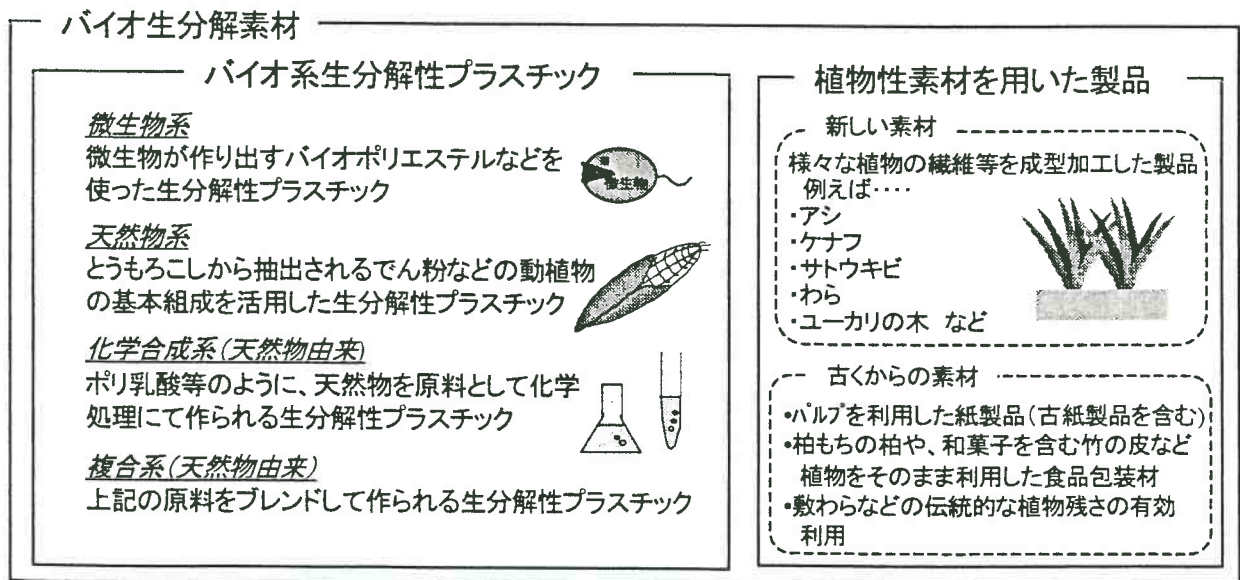 バイオ生分解素材
バイオ系生分解性プラスチック
微生物系
微生物が作り出すバイオポリエステルなどを
使った生分解性プラスチック
微生物
天然物系
とうもろこしから抽出されるでん粉などの動植物
の基本組成を活用した生分解性プラスチック
化学合成系(天然物由来)
ポリ乳酸等のように、天然物を原料として化学
処理にて作られる生分解性プラスチック
複合系(天然物由来)
上記の原料をブレンドして作られる生分解性プラスチック
植物性素材を用いた製品
新しい素材
様々な植物の繊維等を成型加工した製品
例えば‥‥
・アシ
・ケナフ
・サトウキビ
・わら
・ユーカリの木 など
古くからの素材
•パルプを利用した紙製品(古紙製品を含む)
•柏もちの柏や、和菓子を含む竹の皮など
植物をそのまま利用した食品包装材
•敷わらなどの伝統的な植物残さの有効
利用